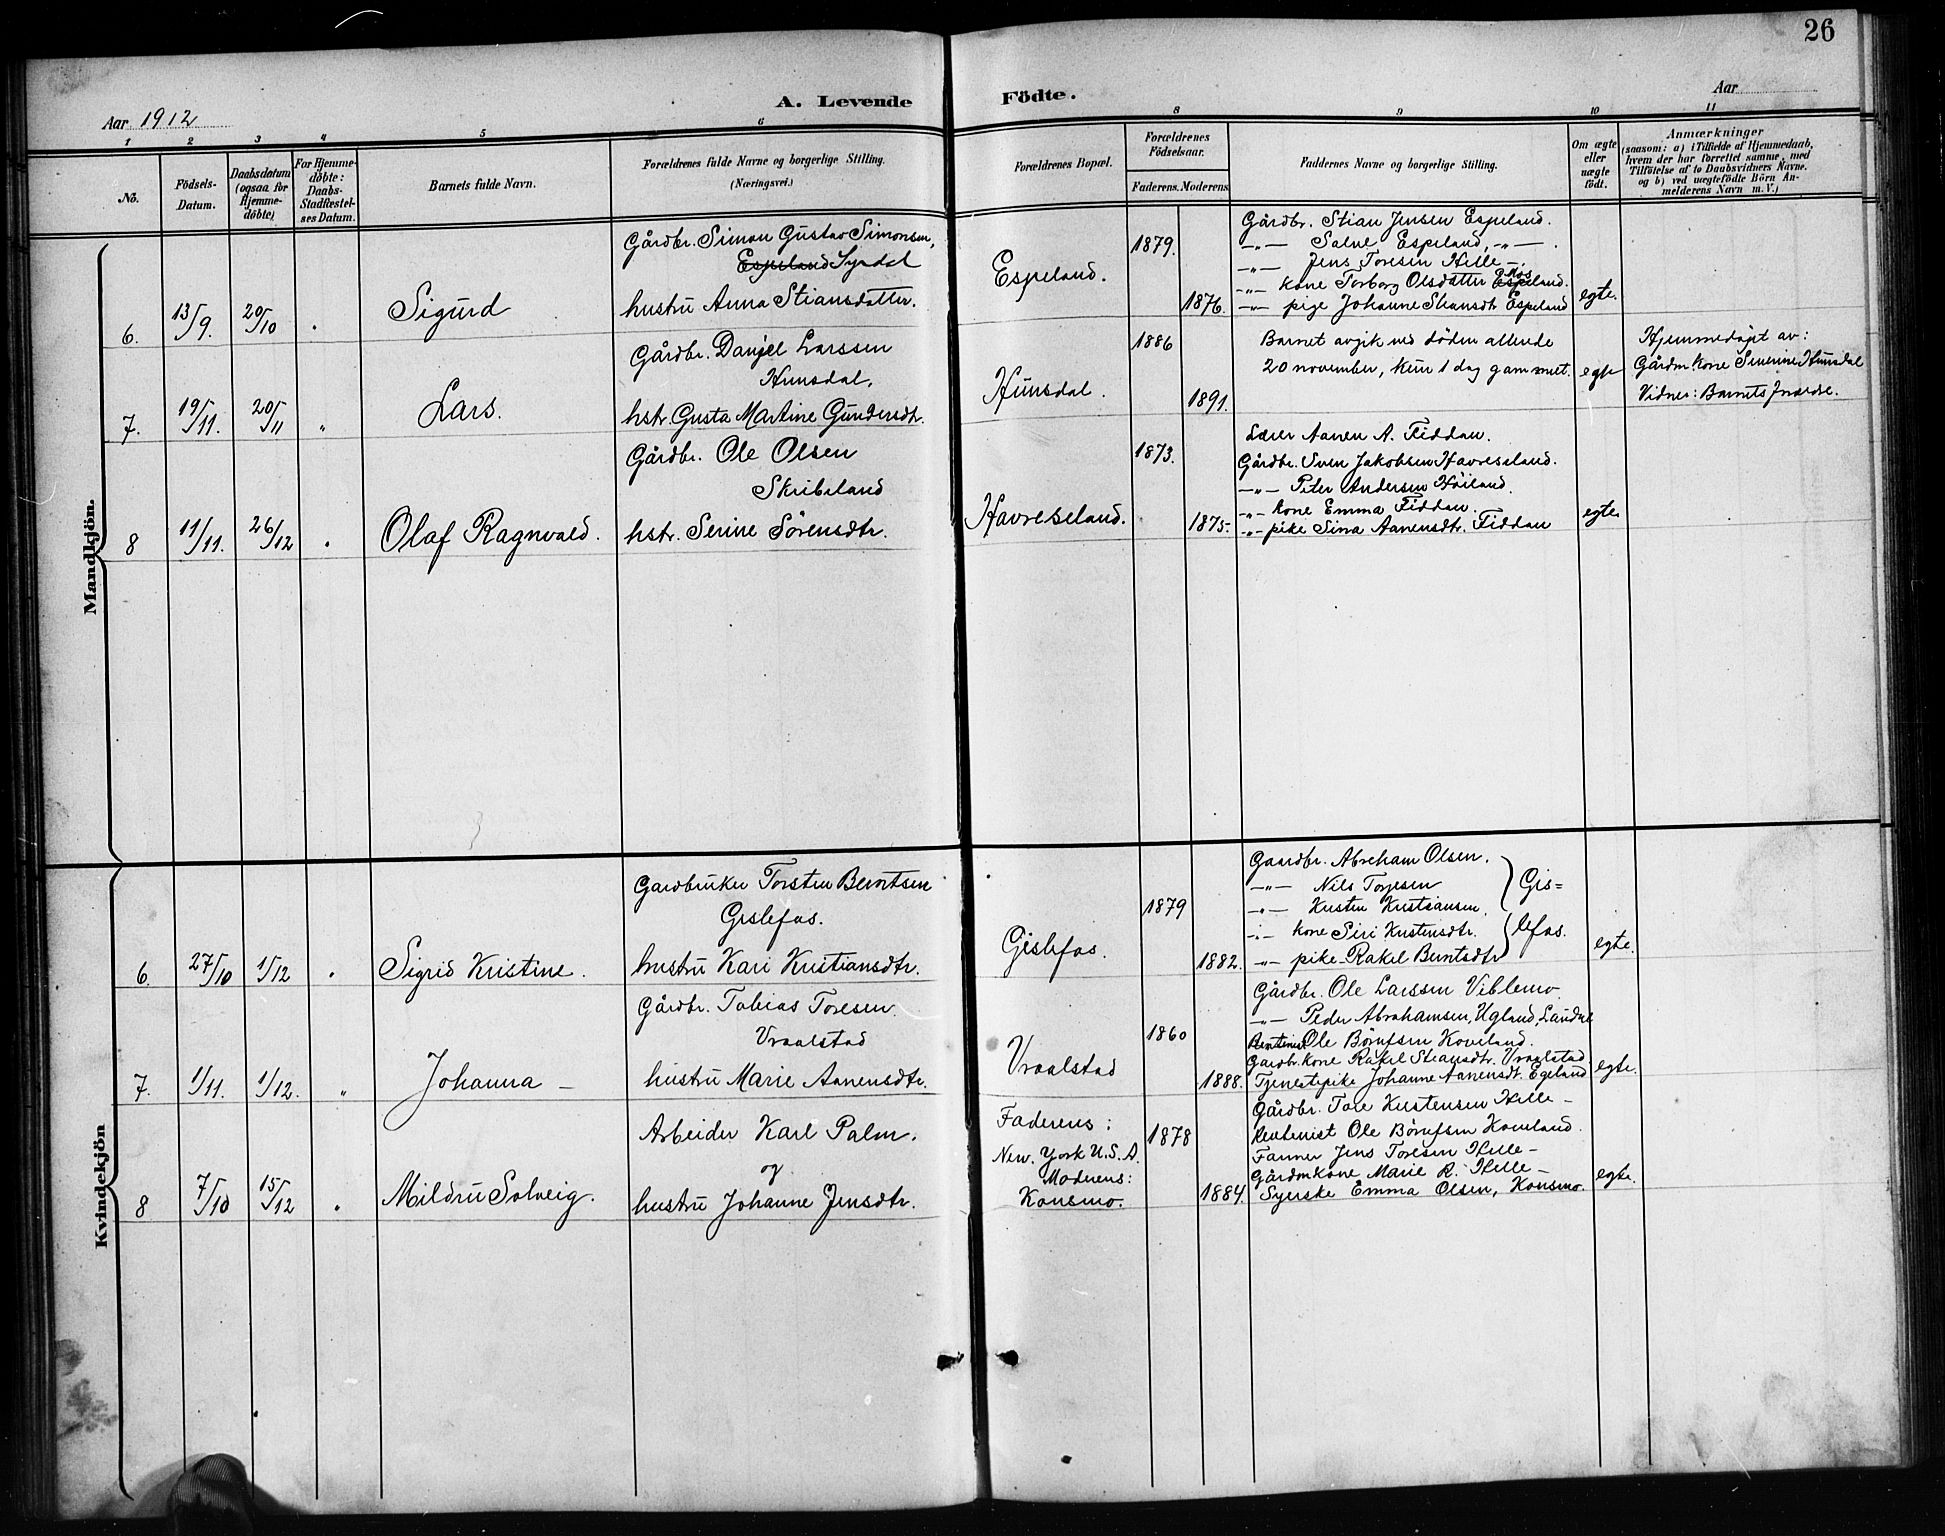 26
Aar 1912
A. Levende
Födte.
Aar
1 2 3 4 5 6 8 9 10 11
No.
Födsels-
Datum.
Daabsdatum
(ogsaa for
Hjemme-
döbte)
For Hjemme-
döbte:
Daabs-
Stadfæstel-
ses Datum.
Barnets fulde Navn.
Forældrenes fulde Navne og borgerlige Stilling.
(Næringsvei.)
Forældrenes Bopæl.
Forældrenes
Födselsaar.
Faderens. Moderens
Faddernes Navne og borgerlige Stilling.
Om ægte
eller
uægte
födt.
Anmærkninger
(saasom: a) i Tilfælde af Hjemmedaab,
hvem der har forrettet samme, med
Tilföielse af to Daabsvidners Navne.
og b) ved uægtefödte Börn An-
melderens Navn m. V.)
Mandkjön.
6. 13/9. 20/10 "
Sigurd
Gårdbr. Simon Gustav Simonsen,
Espeland Syrdal
hustru Anna Stiansdatter.
Espeland.
1879.
1876.
Gårdbr. Stian Jensen Espeland.
-"- Salve Espeland, -"-.
-"- Jens Toresen Hille -.
-"- kone Torborg Olsdatter Espeland.
-"- pige Johanne Stiansdt. Espeland
egte.
7. 19/11. 20/11 "
Lars.
Gårdbr. Danjel Larssen
Hunsdal.
hstr. Gusta Martine Gundersdtr.
Hunsdal.
1886
1891.
Barnet avgik ved döden allerede
20 november, kun 1 dag gammet.
egte
Hjemmedöpt av:
Gårdm.kone Severine Hunsdal
Vidner: Barnets Forældre.
8 11/11. 26/12 "
Olaf Ragnvald.
Gårdbr. Ole Olsen
Skribeland
hstr. Serine Sörensdtr.
Havreseland.
1873.
1875.
Lærer Aanen A. Fiddan.
Gårdbr. Sven Jakobsen Havreseland.
-"- Peter Andersen Höiland.
-"- kone Emma Fiddan.
-"- pike Sina Aanensdtr. Fiddan
egte.
Kvindekjön
6. 27/10 1/12 "
Sigrid Kristine.
Gardbruker Torsten Berntsen
Gislefos.
hustru Kari Kristiansdtr.
Gislefos.
1879
1882.
Gaardbr. Abreham Olsen.
-"- Nils Torjesen
-"- Kristen Kristiansen.
-"- kone Siri Kristensdtr.
-"- pike Rakel Berntsdtr
Gis=
lefos.
egte.
7. 1/11. 1/12. "
Johanna -
Gårdbr. Tobias Toresen
Vraalstad
hustru Marie Aanensdtr.
Vraalstad
1860
1888.
Gårdbr. Ole Larssen Viblemo.
-"- Peder Abrahamsen, Ugland, Laudal
Rentenist Ole Börufsen Koveland.
Gardbr.kone Rakel Stiansdtr. Vraalstad
Tjenestepike Johanne Aanensdt. Egeland
egte.
8 7/10 15/12 "
Mildru Solveig.
Arbeider Karl Palm.
og
hustru Johanne Jensdtr.
Faderens:
New. York U.S.A.
Moderens:
Konsmo.
1878
1884.
Gårdbr. Tore Kristensen Hille -
Rentenist Ole Börufsen Koveland.
Farmer Jens Toresen Hille -
Gårdmkone Marie R. Hille -
Syerske Emma Olsen, Konsmo.
egte.